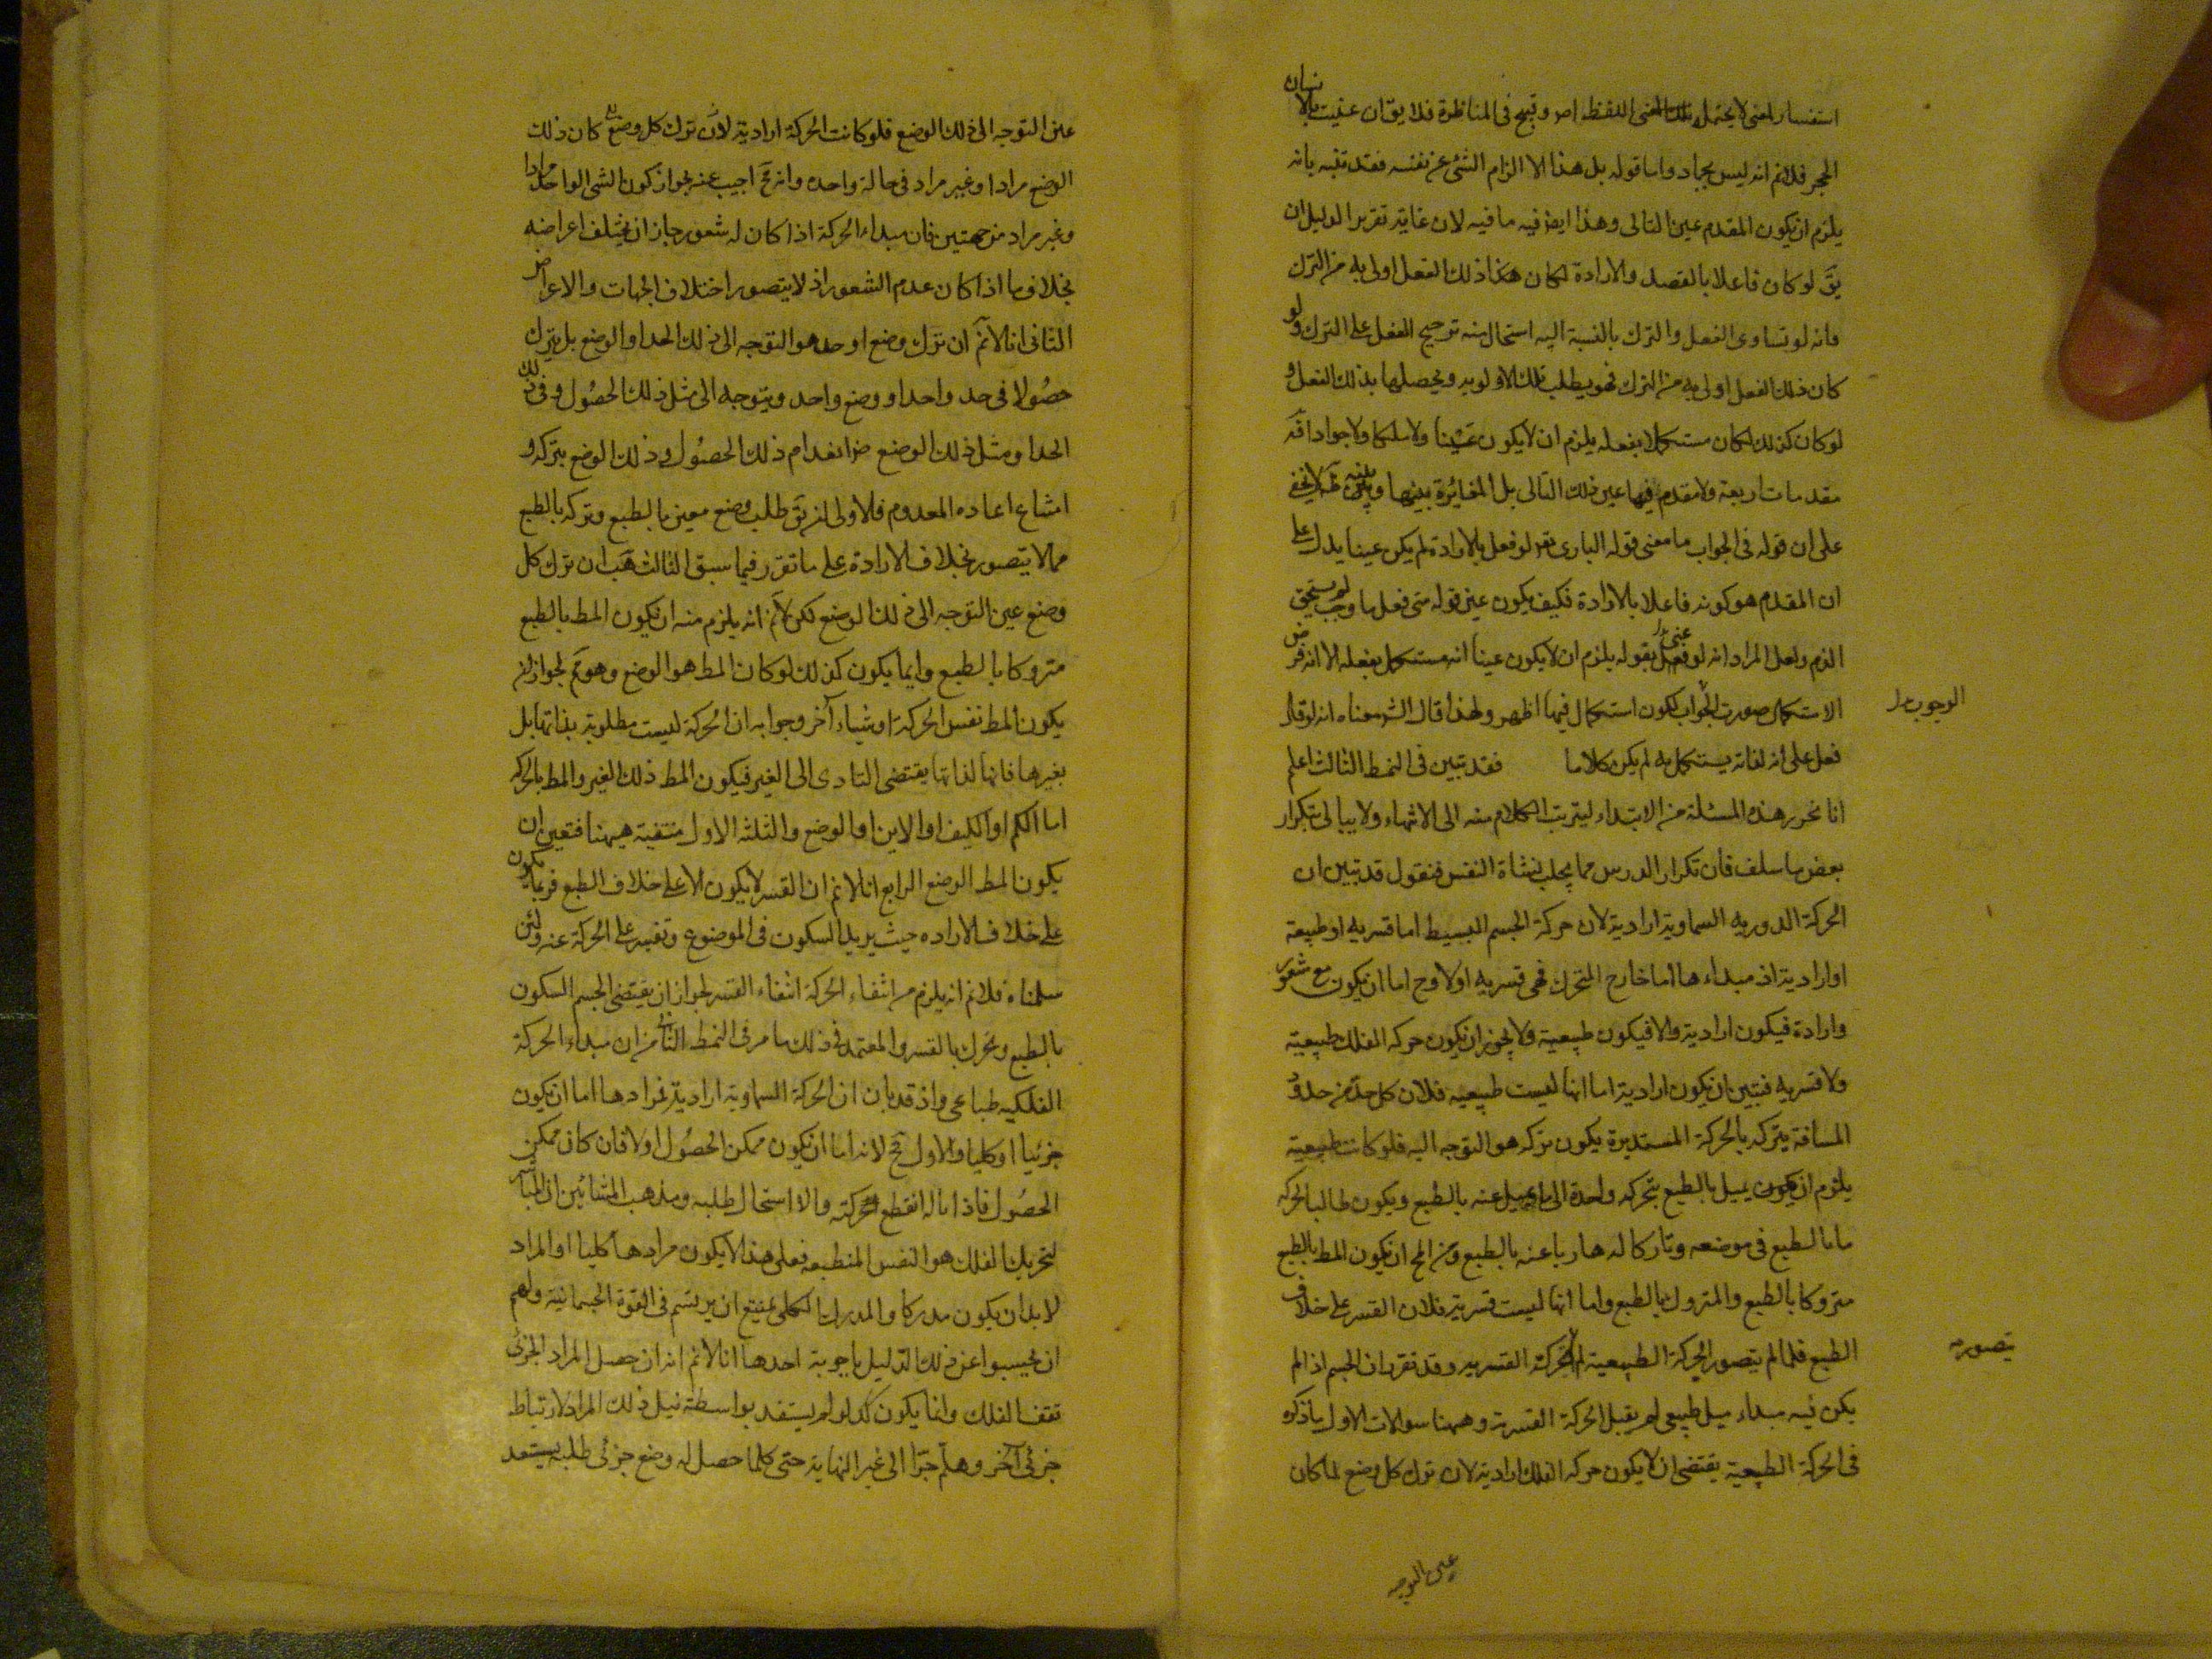 استفسار لمعنى لا يحتمل تلك المعنى اللفظ اصلا وقبيح فى المناظرة فلا يق ان عنيت بالانسان
الحجر فلانم انه ليس بجماد واما قوله بل هذا الا الزام الشئ عن نفسه فقد تنبه بانه
يلزم ان يكون المقدم عين التالى وهذا ايض فيه ما فيه لان غاية تقرير الدليل ان
يق لو كان فاعلا بالقصد والارادة لكان هكذا ذلك الفعل اولى به من الترك
فانه لو تساوى الفعل والترك بالنسبة اليه استحال منه ترجيح الفعل على الترك ولو
كان ذلك الفعل اولى به من الترك فهو يطلب تلك الاولويه ويحصلها بذلك الفعل و
لو كان كذلك لكان مستكملا بفعله يلزم ان لا يكون غنينا ولا ملكا ولا جوادا فه
مقدمات اربعة ولا مقدم فيها عين ذلك التالى بل المغائرة بينها لا يخفى
على ان قوله فى الجواب ما معنى قوله البارى تعر لو فعل بالارادة لم يكن عينا يدل على
ان المقدم هو كونه فاعلا بالارادة فكيف يكون عين قوله متى فعل ما وجب لم يستحق
الذم ولعل المراد انه لو فعل عنى بقوله يلزم ان لا يكون عينا انه مستكمل بفعله الا انه فرض
الاستكمال صورت الجواب لكون استكمال فيها اظهر ولهذا قال الشر معناه انه لو قال
الوجوب
فعل على انه لفاته يستكمل به لم يكن كلاما فقد تبين فى النمط الثالث اعلم
انا نحرر هذه المسئلة من الابتداء ليترتب الكلام منه الى الانتهاء ولا يبالى بتكرار
بعض ما سلف فان تكرار الدرس مما يجلب نشاة النفس فنقول قد تبين ان
الحركة الدوريه السماوية ارادية لان حركة الجسم البسيط اما قسريه او طبيعة
او ارادية اذ مبداءها اما خارج المتحرك فهى قسريه اولا وح اما ان يكون مع شعور
وارادة فيكون ارادية والا فيكون طبيعية ولا يجوز ان يكون حركه الفلك طبيعية
ولا قسريه فتبين ان يكون ارادية اما انها ليست طبيعيه فلان كل حد من حدود
المسافة يتركه بالحركة المستديرة يكون تركه هو التوجه اليه فلو كانت طبيعية
يلزم ان يكون يميل بالطبع بتحركه واحدة الى ما يميل عنه بالطبع ويكون طالبا لحركه
ما بالطبع فى موضعه وتاركا له هاربا عنه بالطبع ومن المح ان يكون المط بالطبع
متروكا بالطبع والمتروك بالطبع واما انها ليست قسرية فلان القسر على خلاف
الطبع فلما لم يتصور الحركة الطبيعية لم الحركة القسريه وقد تقرر ان الجسم اذا لم
يتصور
يكن فيه مبداء ميل طبيعى لم يقبل الحركة القسرية وههنا سوالات الاول ما ذكره
فى الحركة الطبيعية يقتضى ان لا يكون حركه الفلك ارادية لان ترك كل وضع لما كان
عين التوجه
عين التوجه الى ذلك الوضع فلو كانت الحركة ارادية لان ترك كل وضع كان ذلك
الوضع مرادا وغير مراد فى حالة واحده وانه مح اجيب عنه بجواز كون الشى الواحد مرادا
وغير مراد من جهتين فان مبداء الحركة اذا كان له شعور جاز ان يختلف اعراضه
بخلاف ما اذا كان عدم الشعور اذ لا يتصور اختلاف الجهات والاعراض
الثانى انا لانم ان ترك وضع او حد هو التوجه الى ذلك الحد او الوضع بل يترك
حصولا فى حد واحد او وضع واحد ويتوجه الى مثل ذلك الحصول وفى ذلك
الحد او مثل ذلك الوضع ضر انعدام ذلك الحصول وذلك الوضع بتركه و
امتناع اعاده المعدوم فلا ولى ان يق طلب وضع معين بالطبع وتركه بالطبع
مما لا يتصور بخلاف الارادة على ما تقرر فيما سبق الثالث هب ان ترك كل
وضع عين التوجه الى ذلك الوضع لكن لانم انه يلزم منه ان يكون المط بالطبع
متروكا بالطبع وانما يكون كذلك لو كان المط هو الوضع وهو مم لجواز ان
يكون المط نفس الحركة او شياء آخر وجوابه ان الحركة ليست مطلوبة بذاتها بل
بغيرها فانها لذاتها يقتضى التادى الى الغير فيكون المط ذلك الغير والمط بالحركه
اما الكم او الكيف او الاين او الوضع والثلثه الاول منتفية ههنا فتعين ان
يكون المط الوضع الرابع انا لانم ان القسر لا يكون الا على خلاف الطبع فربما يكون
على خلاف الاراده حيث يريد السكون فى الموضوع وتقيسر على الحركة عنه ولئن
سلمناه فلانم انه يلزم من انتفاء الحركة انتفاء القسر لجواز ان يقتضى الجسم السكون
بالطبع وتحرك بالقسر والمعتمد فى ذلك ما مر فى النمط الثانى من ان مبداء الحركة
الفلكيه طباعى واذ قد بان ان الحركة السماوية ارادية فمرادها اما ان يكون
جزئيا او كليا والاول مح لانه اما ان يكون ممكن الحصول اولا فان كان ممكن
الحصول فاذا ناله انقطع حركته والا استحال طلبه ومذهب المشائين ان المباشر
لتحريك الفلك هو النفس المنطبعه فعلى هذا لا يكون مرادها كليا او المراد
لا بد ان يكون مدركا والمدرك بالكلى يمتنع ان يرتسم فى القوة الجسمانية ولهم
ان يجيبوا عن ذلك الدليل باجوبة احدها انا لانم انه ان حصل المراد الجزئى
تقف الفلك وانما يكون كذا لو لم يستفد بواسطة نيل ذلك المراد لارتباط
جزئى آخر وهلم جرّا الى غير النهاية حتى كلما حصل له وضع جزئى طلبه يستعد